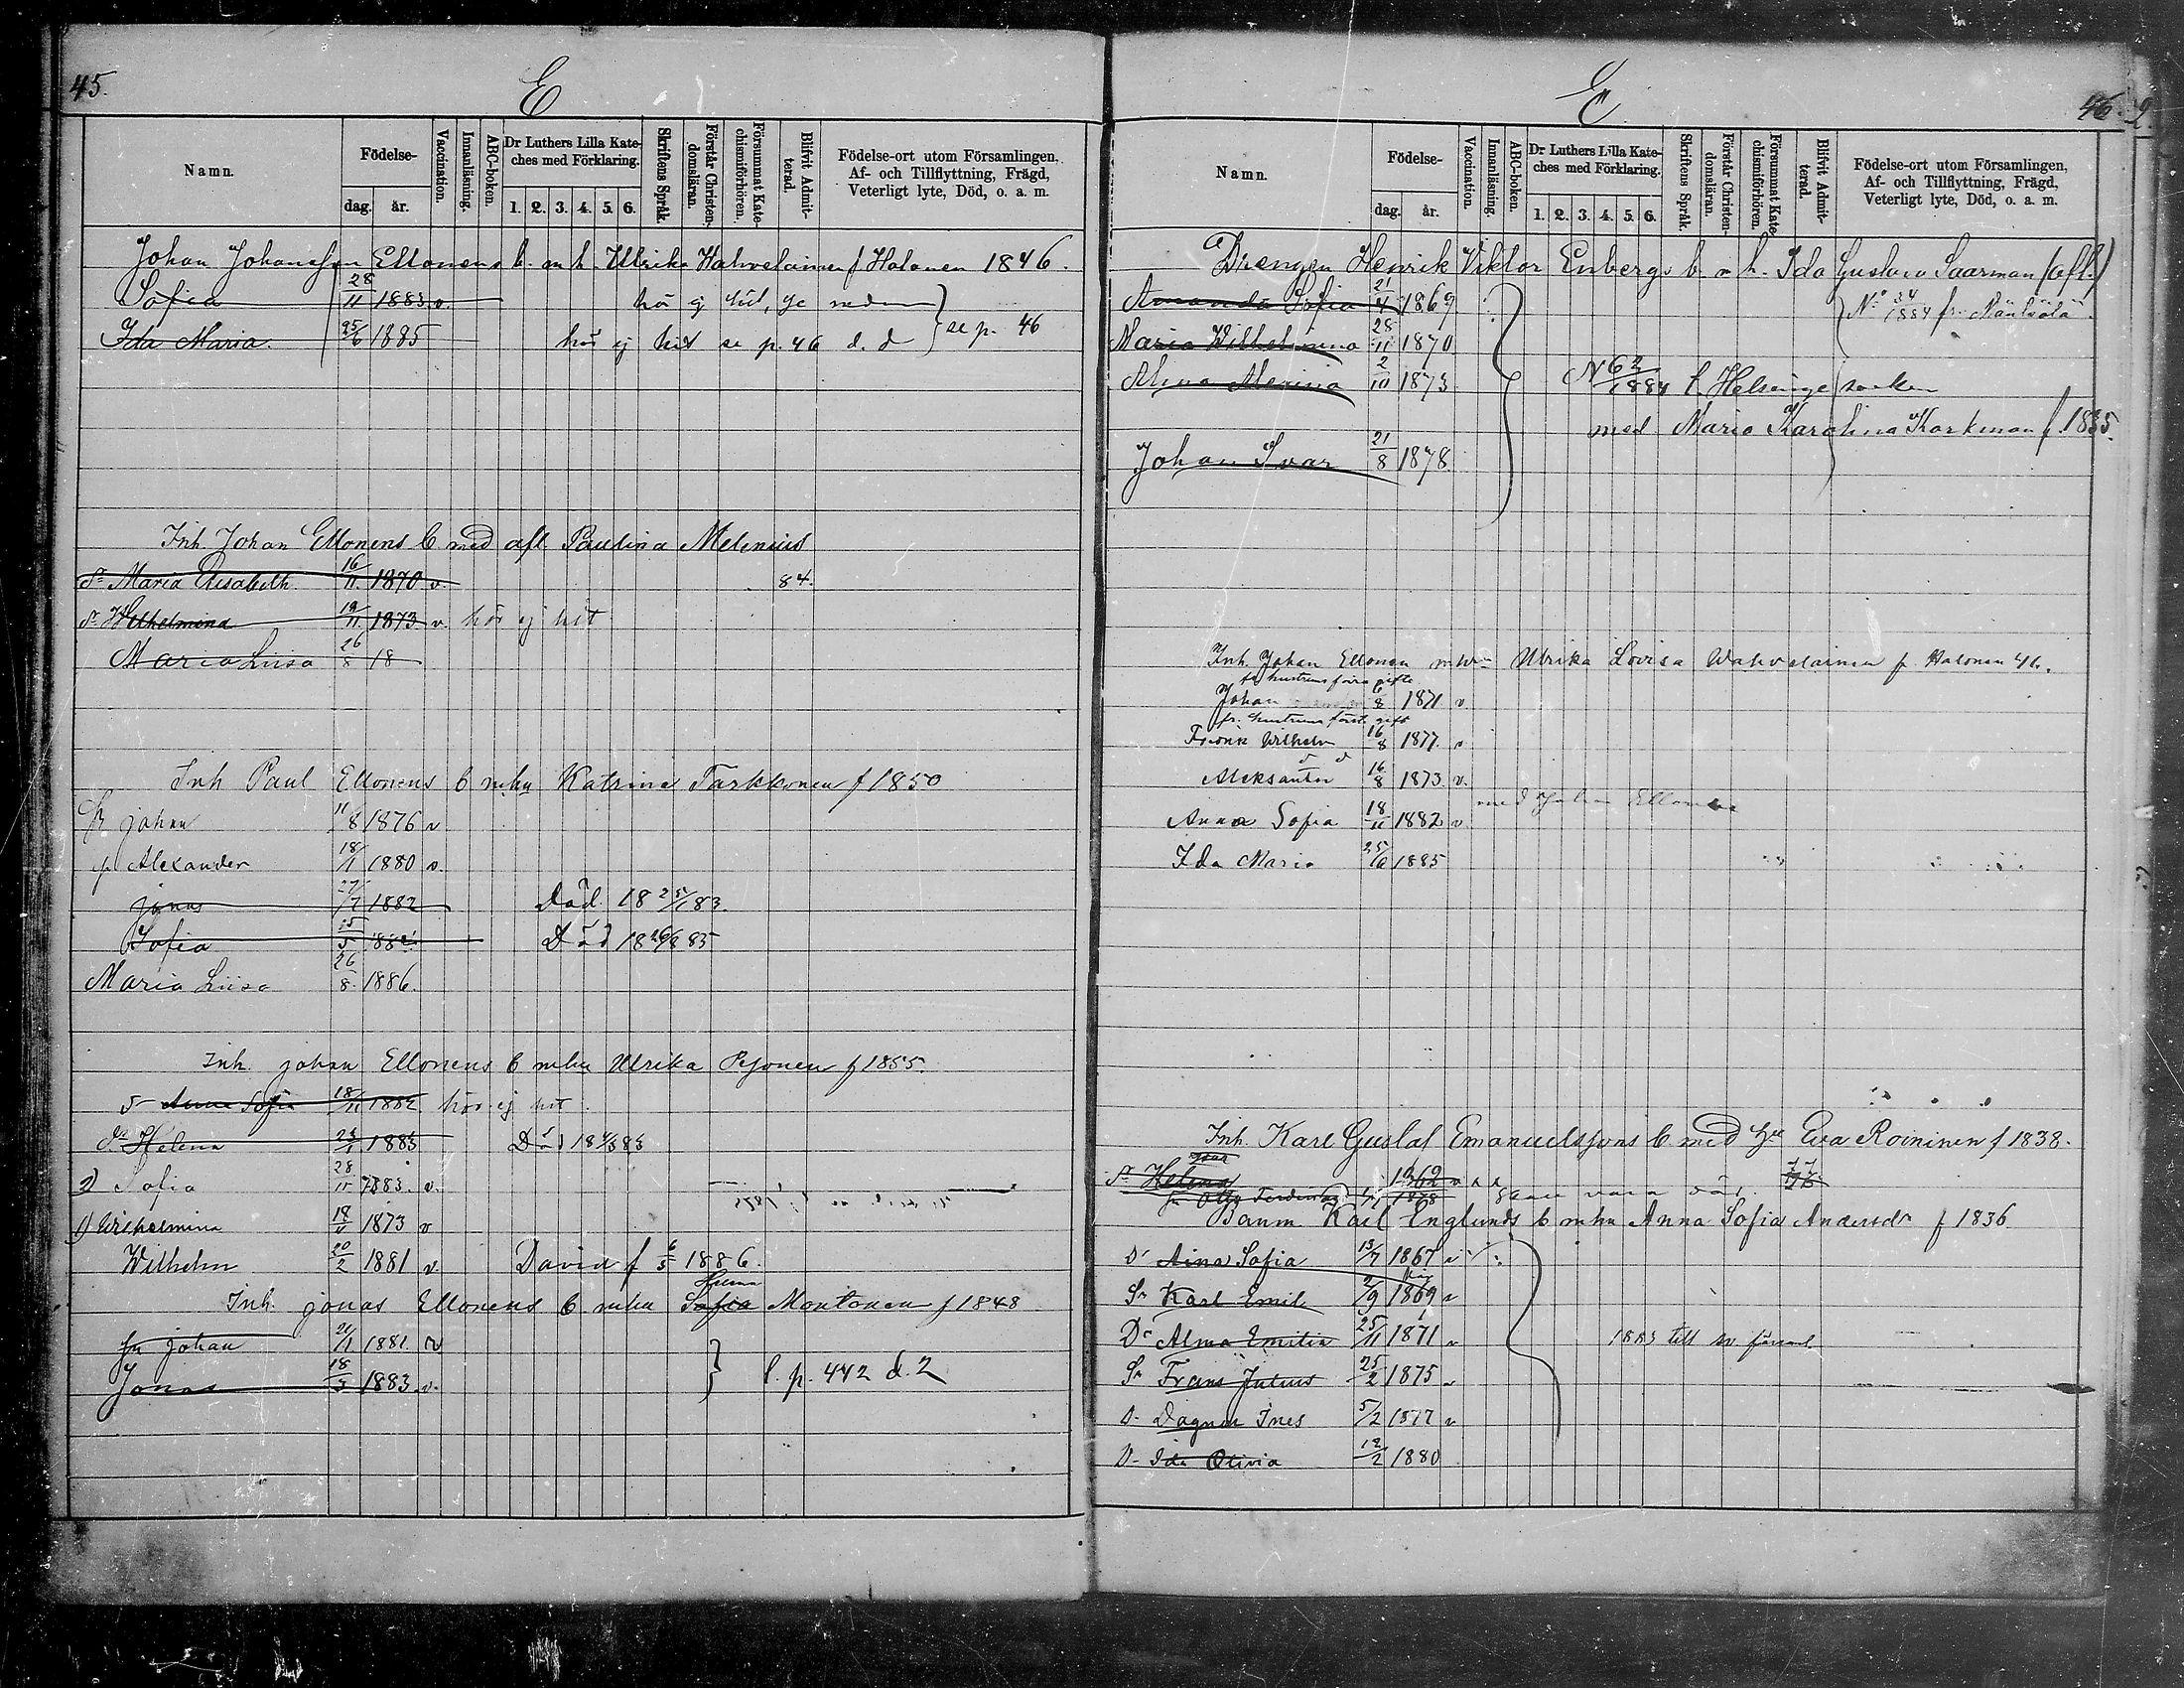 45.
E
Namn.
Födelse-
dag. år.
Vaccination.
Innanläsning.
ABC-boken.
Dr Luthers Lilla Kate-
ches med Förklaring.
1. 2. 3. 4. 5. 6.
Skriftens Språk.
Förstår Christen-
domsläran.
Försummat Kate-
chismiförhören.
Blifvit Admit-
terad.
Födelse-ort utom Församlingen,
Af- och Tillflyttning, Frägd,
Veterligt lyte, Död, o. a. m.
Johan Johansson Ellonens b. m. h. Ulrika Wahvelainen f Halonen 1846.
Sofia 28/11 1883 v. hör ej hit, se
Ida Maria 25/6 1885 hör ej hit se p. 46 d. d } se p. 46
Inh. Johan Ellonens b med afl. Paulina Melenius
Dr Maria Elisabeth 16/11 1870 v 84.
Dr Wilhelmina 19/11 1873 v. hör ej hit
Maria Liisa 26/8 18
Inh Paul Ellonens b m hu Katrina Tarkkonen f 1850
Sr Johan 11/8 1876 v
Sr Alexander 18/1 1880 v.
Jonas 27/7 1882 Död. 18 25/1 83.
Sofia 15/5 188 Död 18 85
Maria Liisa 26/8 1886.
Inh. Johan Ellonens b m hu Ulrika Pesonen f 1855.
Anna Sofia 18/11 1882 hör ej hit.
Dr Helena 1883 Död 18
2) Sofia 28/11 1883. v.
1) Wilhelmina 18/11 1873 v
Wilhelm 20/2 1881 v. David f 6/5 1886.
Helena
Inh. Jonas Ellonens b m hu Sofia Montonen f 1848
Johan 21/1 1881. v
Jonas 18/3 1883. v. } l. p. 442 d. 2
E
46. 2.
Namn.
Födelse-
dag. år.
Vaccination.
Innanläsning.
ABC-boken.
Dr Luthers Lilla Kate-
ches med Förklaring.
1. 2. 3. 4. 5. 6.
Skriftens Språk.
Förstår Christen-
domsläran.
Försummat Kate-
chismiförhören.
Blifvit Admit-
terad.
Födelse-ort utom Församlingen,
Af- och Tillflyttning, Frägd,
Veterligt lyte, Död, o. a. m.
Drengen Henrik Viktor Enbergs b m h. Ida Gustava Saarman (afl.)
Amanda Sofia 21/4 1869 No 34/1884 fr.
Maria Wilhelmina 28/11 1870
Alma Merina 2/10 1873 N 62/1884 t. Helsinge socken
med Maria Karolina Korkman f. 1835.
Johan Ivar 21/8 1878
Inh. Johan Ellonen m hu Ulrika Lovisa Wahvelainen f. Halonen 46.
fr hustruns förra gifte
Johan 6/8 1871 v.
fr. hustruns först. gift
Fredrik Wilhelm 16/8 1877. v
Aleksanter 16/8 1873. v.
med Johan Ellonen
Anna Sofia 18/11 1882 v
Ida Maria 25/6 1885
Inh. Karl Gustaf Emanuelssons b med hu Eva Roininen f 1838.
Dr Helena 1862 v x x
Otto Ferdinand 1878 vara död.
Banm. Karl Englunds b m hu Anna Sofia Andersdr f 1836.
Dr Aina Sofia 13/7 1867 v
Sr Karl Emil 2/9 1869 v
Dr Alma Emilia 25/11 1871 v 1883 till sv församl.
Sr Frans Julius 25/2 1875 v
D. Dagmar Ines 5/2 1877 v
D. Ida Olivia 12/2 1880